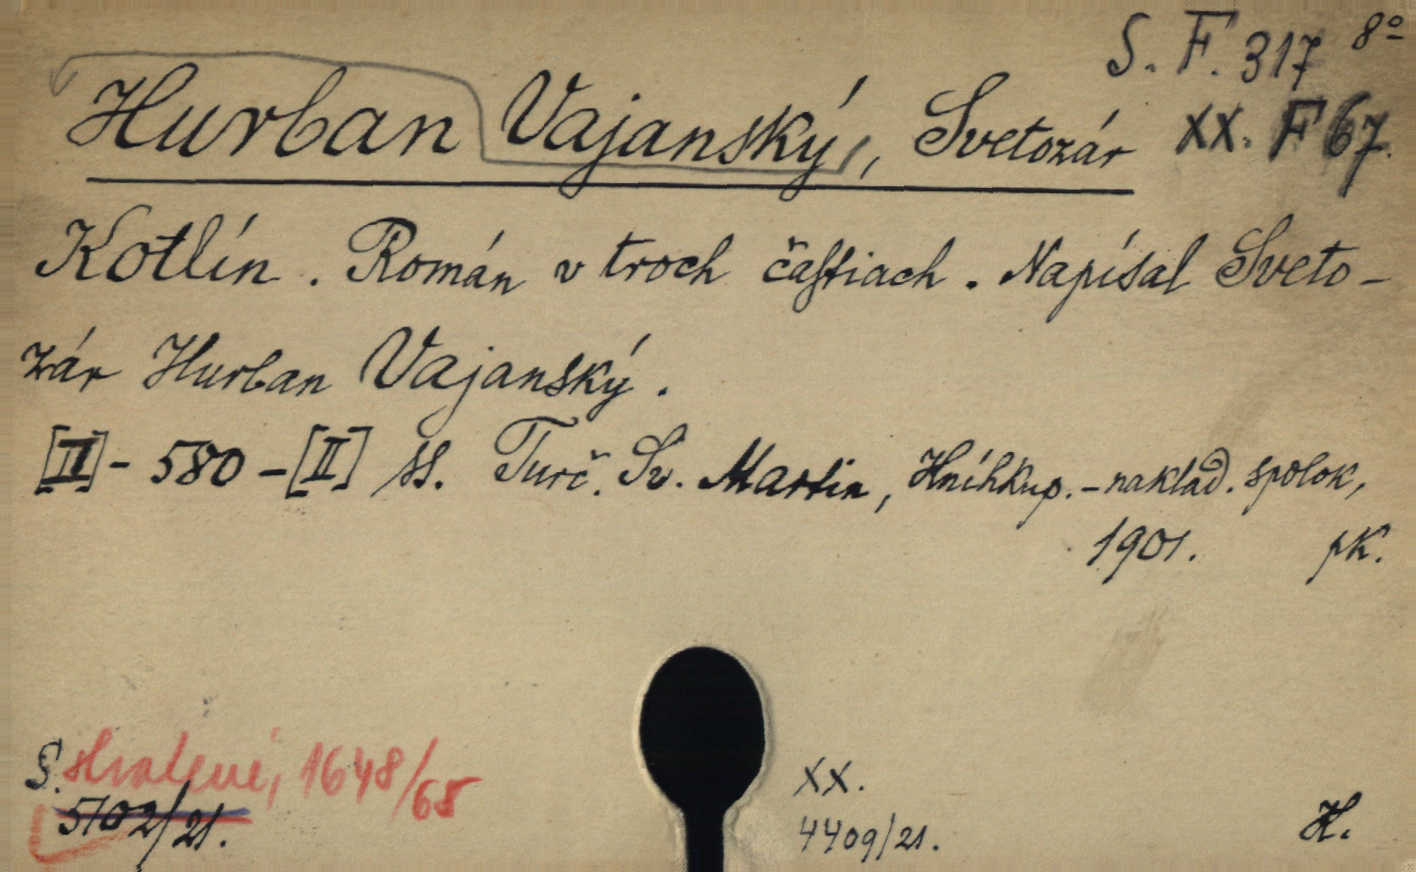 S. F. 317 8º
Hurban Vajanský, Svetozár XX. F 67.
Kotlín. Román v troch čaſtiach. Napísal Sveto-
zár Hurban Vajanský.
[II]- 580 -[II] ss. Turč. Sv. Martin, Kníhkup.-naklad. spolok,
1901. pk.
S. 1648/65
5102/21.
XX.
4409/21.
H.